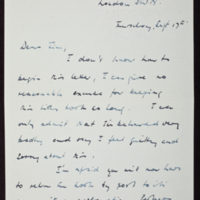 London
Tuesday, Sept 19th
Dear Tim,
I don't know how to
begin this letter, I can give no
reasonable excuse for keeping
this book so long. I can
only admit that I've behaved very
badly and say I feel guilty and
sorry about this.
I'm afraid you will now have
to return the book by post to